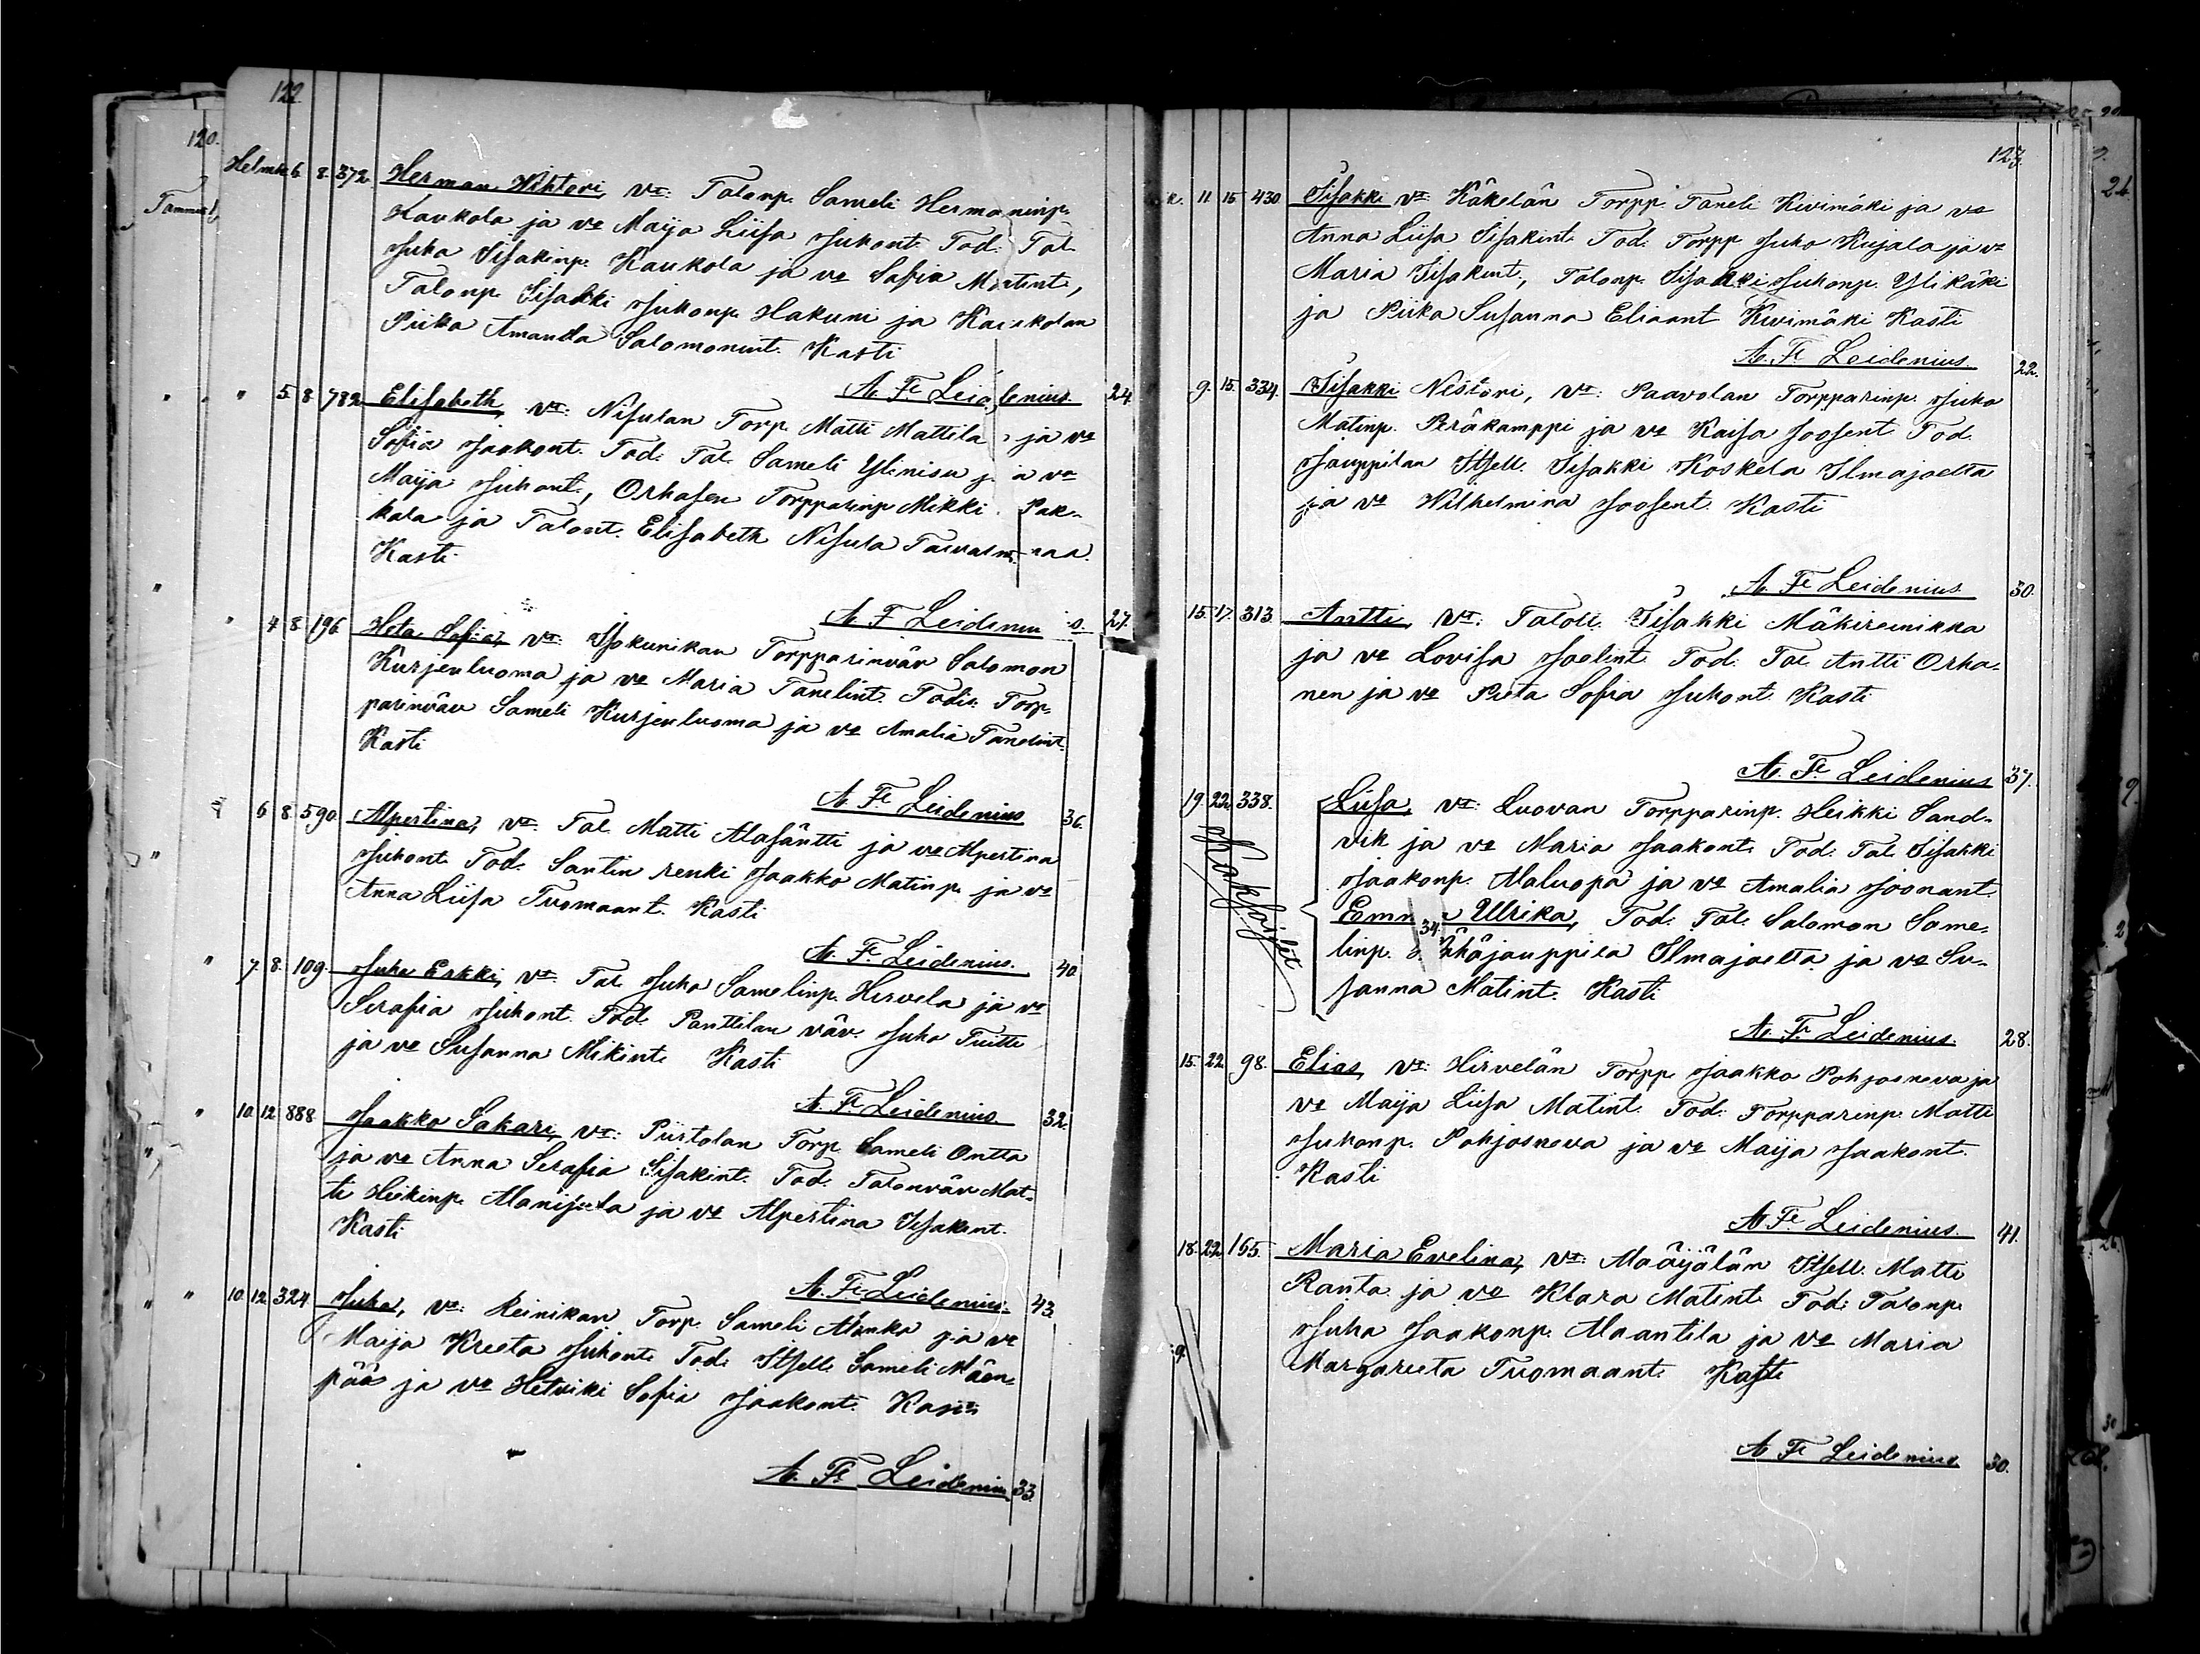 122.
120.
Tammik.
Helmik. 6. 8. 372. Herman Wihtori, vt: Talonp. Sameli Hermaninp.
Kaukola ja vo Maija Liisa Juhont. Tod. Tal.
Juha Iisakinp. Kaukola ja vo Sofia Matint.,
Talonp. Iisakki Juhonp. Hakuni ja Kaukolan
Piika Amanda Salomonint. Kasti
A. F. Leidenius. 24.
" " 5. 8. 782. Elisabeth, vt: Nisulan Torp. Matti Mattila ja vo
Sofia Jaakont. Tod. Tal. Sameli Ylinisu ja vo
Maija Juhont., Orhasen Torpparinp. Mikki Pak-
kala ja Talont. Elisabeth Nisula
Kasti.
A F Leidenius. 27.
" 4 8 196. Heta Sofia, vt: Isokunikan Torpparinväv Salomon
Kurjenluoma ja vo Maria Tanelint. Todis. Torp-
parinväv Sameli Kurjenluoma ja vo Amalia Tanelint.
Kasti
A. F. Leidenius 36.
" 6 8. 590. Alpertina, vt. Tal. Matti Alasäntti ja vo Alpertina
Juhont. Tod. Santin renki Jaakko Matinp. ja vo
Anna Liisa Tuomaant. Kasti
A. F. Leidenius. 40.
" 7. 8. 109. Juha Erkki, vt. Tal. Juha Samelinp. Hirvela ja vo
Serafia Juhont. Tod. Panttilan väv. Juha Tuitti
ja vo Susanna Mikint. Kasti
A. F. Leidenius. 32.
" 10. 12. 888. Jaakko Sakari, vt: Piirtolan Torp. Sameli Ontta
ja vo Anna Serafia Iisakint. Tod. Talonväv Mat-
ti Heikinp. Alanisula ja vo Alpertina Iisakint.
Kasti
A. F. Leidenius. 43.
" " 10. 12. 324. Juha, vt: Reinikan Torp. Sameli Alanko ja vo
Maija Kreeta Juhont. Tod. Itsell. Sameli Mäen-
pää ja vo Hetviki Sofia Jaakont. Kasti
A. F. Leidenius 33.
123.
k. 11. 15. 430. Iisakki vt: Käkelän Torpp. Taneli Kivimäki ja vo
Anna Liisa Iisakint. Tod. Torpp. Juho Kujala ja vo
Maria Iisakint., Talonp. Iisakki Juhonp. Ylikäki
ja Piika Susanna Eliaant Kivimäki Kasti
A. F. Leidenius. 22.
9. 15. 334. Iisakki Nestori, vt: Paavolan Torpparinp. Juho
Matinp. Peräkamppi ja vo Kaisa Joosent. Tod.
Jauppilan Itsell. Iisakki Koskela Ilmajoelta
ja vo Wilhelmina Joosent. Kasti
A. F. Leidenius. 30.
15. 17. 313. Antti, vt. Taloll. Iisakki Mäkireinikka
ja vo Lovisa Joelint. Tod. Tal. Antti Orha-
nen ja vo Pieta Sofia Juhont. Kasti
A. F. Leidenius 37.
19. 22. 338. Liisa, vt: Luovan Torpparinp. Heikki Sand-
vik ja vo Maria Jaakont. Tod. Tal. Iisakki
Jaakonp. Alaluopa ja vo Amalia Joonant.
Kaksoiset
Emma Ulrika, Tod. Tal. Salomon Same-
34.
linp. Vähäjauppila Ilmajoelta ja vo Su-
sanna Matint. Kasti
A. F. Leidenius. 28.
15. 22. 98. Elias, vt: Hirvelän Torpp. Jaakko Pohjosneva ja
vo Maija Liisa Matint. Tod. Torpparinp. Matti
Juhonp. Pohjosneva ja vo Maija Jaakont.
Kasti
A. F. Leidenius. 41.
18. 22. 165. Maria Evelina, vt: Määjälän Itsell. Matti
Ranta ja vo Klara Matint. Tod: Talonp.
Juha Jaakonp. Alaantila ja vo Maria
Margareeta Tuomaant. Kasti
A. F. Leidenius 30.